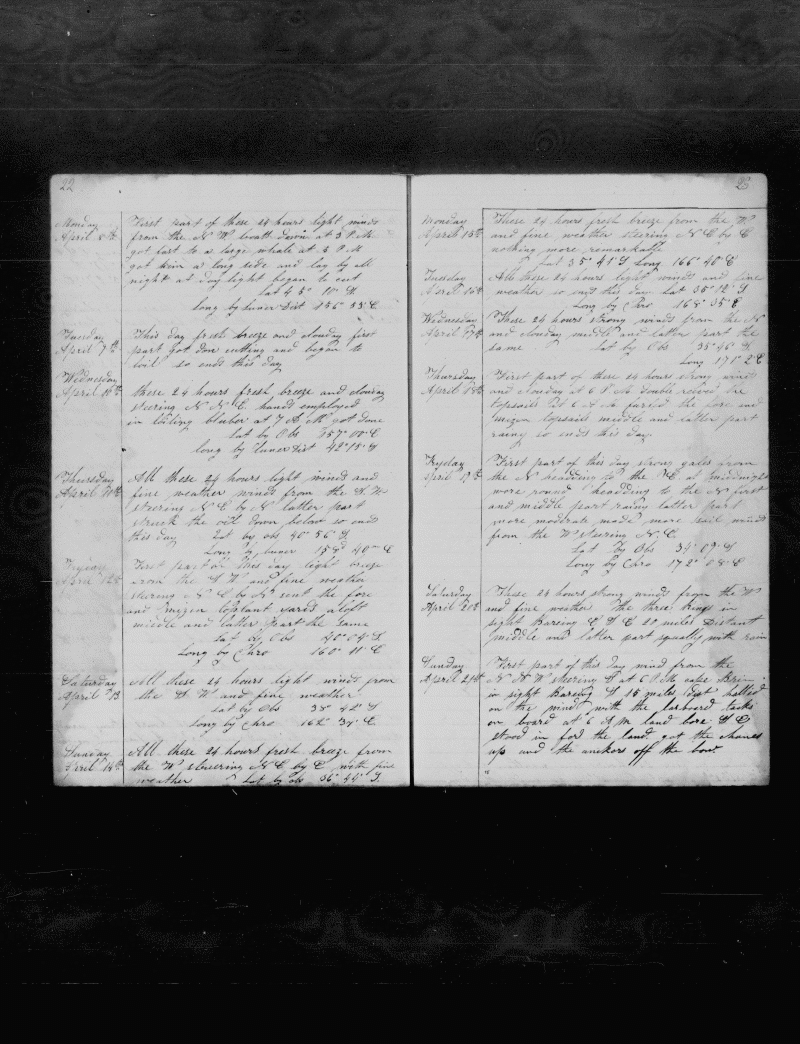 22
Monday
April 8th
First part of these 24 hours light winds
from the N W boath down at 3 P.M
got fast to a large whale at 3 P M
got him a long side and lay by all
night at day light began to cut
lat 43° 11" S
long by luner Dist 156° 33' E
Tuesday
April 9th
This day fresh breeze and cloudy first
part got don cutting and began to
boil so ends this day
Wednesday
April 10th
these 24 hours fresh breeze and cloudy
steering N N E. hands employed
in boiling bluber at 7 A. M got done
lat by Obs 157° 00' E
long by Luner Dist 42° 15' S
Thursday
April 11th
All these 24 hours light winds and
fine weather winds from the S. W
steering N E by N latter part
struck the oil down below so ends
this day Lat by obs 40° 56' S
Long by luner 158° 40" E
Fryday
April 12th
First part of this day light breeze
from the S W and fine weather
steering N E by N sent the fore
and mizen topgant yards aloft
middle and latter part the same
Lat by Obs 40° 04' S
Long by Chro 160° 11' E
Saturday
April 13
All these 24 hours light winds from
the S. W and fine weather
Lat by Obs 38° 42' S
Long by Chro 162° 34' E.
Sunday
April 14th
All these 24 hours fresh breeze from
the W steering N E by E with fine
weather Lat by obs 36° 44' S
23
Monday
April 15th
These 24 hours fresh breeze from the W
and fine weather steering N E by E
nothing more remarkable
Lat 35° 41' S Long 166° 40' E
Tuesday
April 16th
All these 24 hours light winds and fine
weather so ends this day Lat 35° 12' S
Long by Chro 168° 35' E
Wednesday
April 17th
These 24 hours strong winds from the N
and cloudy middle and latter part the
same Lat by Obs 35° 46' S
Long 171° 2' E
Thursday
April 18th
First part of these 24 hours strong winds
and cloudy at 6 P. M double reefed the
topsails at 6 A M furled the fore and
mizen topsails middle and latter part
rainy so ends this day
Fryday
April 19th
First part of this day strong gales from
the N headding to the E. at midnight
wore round headding to the N first
and middle part rainy latter part
more moderate made more sail winds
from the W steering N. E.
Lat by Obs 34° 09' S
Long by Chro 172° 08' E
Saturday
April 20th
These 24 hours strong winds from the W
and fine weather the three kings in
sight baring E S E 20 miles Distant
middle and latter part squally with rain
Sunday
April 21st
First part of this day wind from the
N N W steering S at 6 P. M cape
in sight baring S 15 miles dist halled
on the wind with the larboard tacks
on board at 6 A M land bore S E
stood in for the land got the chanes
up and the anchors off the bow